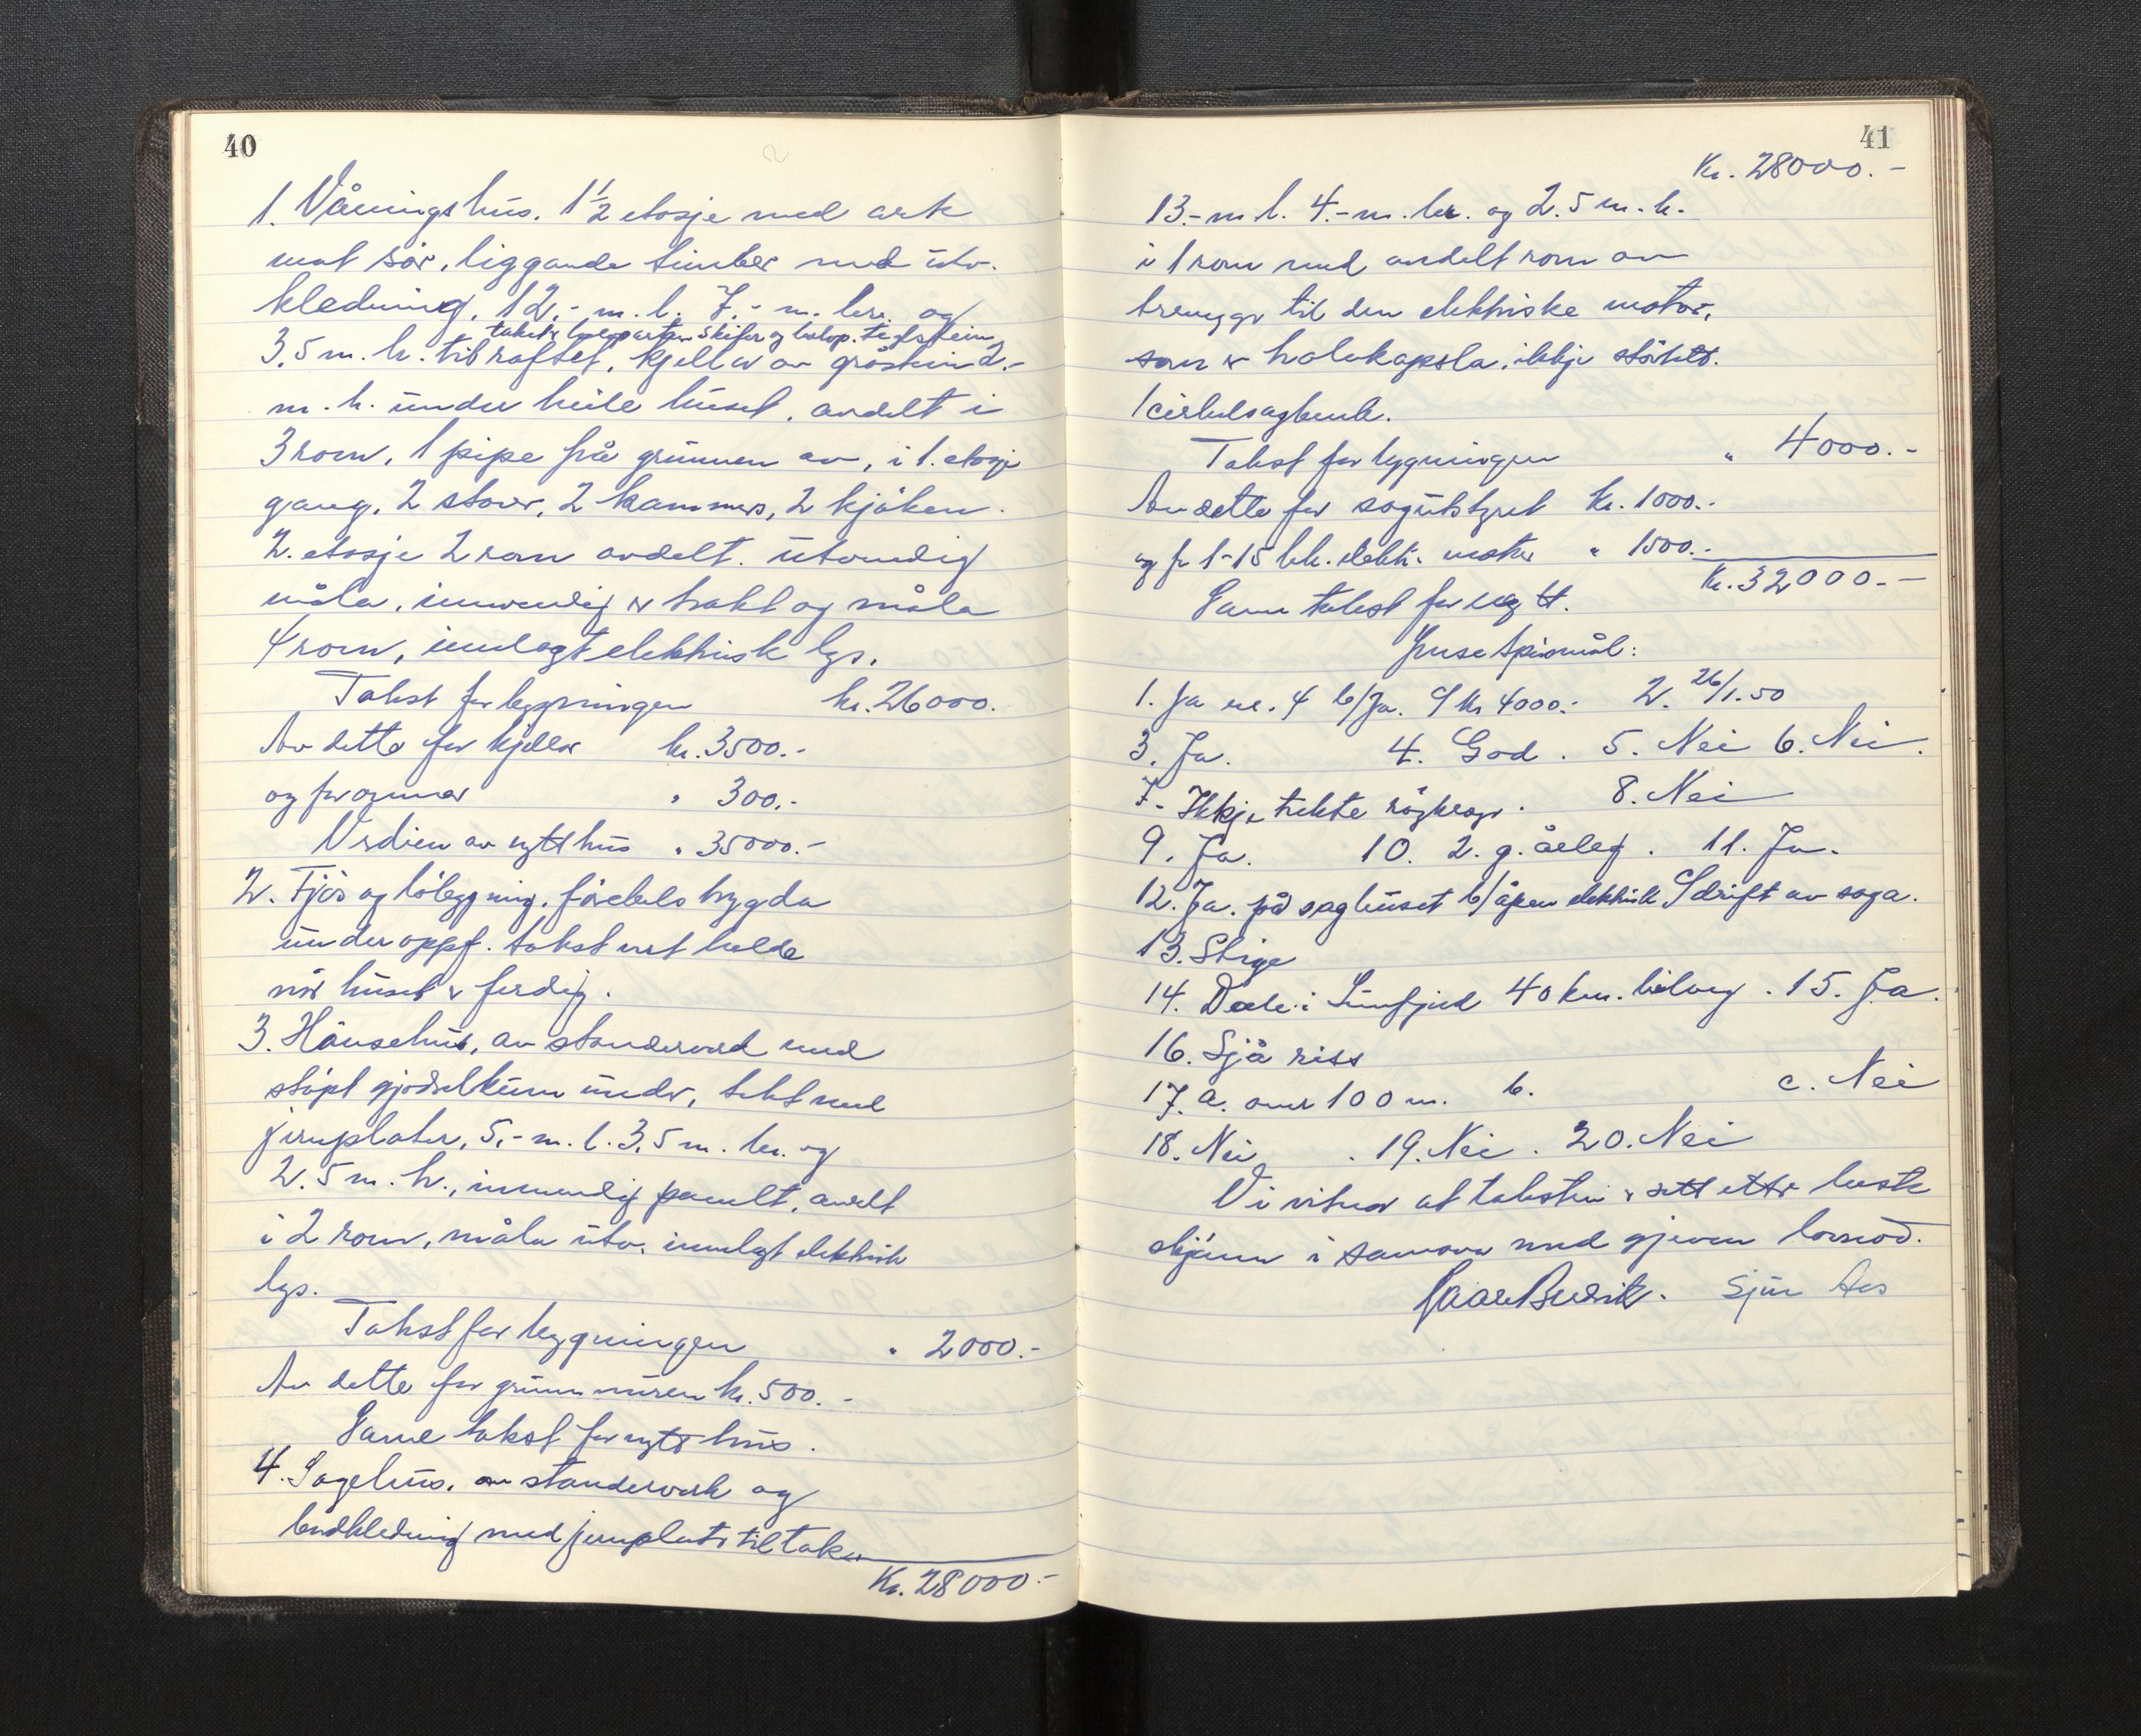 40
1. Våningshus. 1½ etasje med ark
mot sør, liggande timber med utv.
kledning, 12,- m. l. 7,- m. br. og
taket er  skifer og  teglstein
3,5 m. h. til raftet, kjeller av gråstein 2,-
m. h. under heile huset, avdelt i
3 rom, 1 pipe frå grunnen av, i 1. etasje
gang, 2 stover, 2 kammers, 2 kjøken.
2. etasje 2 rom avdelt. utvendig
måla, innvendig er trekt og måla
4 rom, innlagt elektrisk lys.
Takst for bygningen kr. 26000.
Av dette for kjeller kr. 3500.-
og for omner " 300.-
Verdien av nytt hus " 35000.-
2. Fjøs og løbygning, førebels bygda
under oppf. takst vert halde
når huset er ferdig.
3. Hønsehus, av standerverk med
støpt gjødselkum under, tekt med
jernplater, 5,- m. l. 3,5 m. br. og
2.5 m. h., innvendig panelt, avdelt
i 2 rom, måla utv. innlagt elektrisk
lys.
Takst for bygningen " 2000.-
Av dette for grunnmuren kr. 500.-
Same takst for nytt hus.
4. Sagehus, av standerverk og
bordkledning med jernplater til tak
Kr. 28000.-
41
Kr. 28000.-
13.- m l. 4.- m. br. og 2.5 m. h.
i 1 rom med avdelt rom av
trevegger til den elektriske motor,
som er halvkapsla, ikkje støvtett.
1 cirkelsagbenk.
Takst for bygningen " 4000.-
Av dette for sagutstyret kr. 1000.-
og for 1-15 hk. elektr. motor " 1500.-
Kr. 32000.-
Same takst for nytt.
Ymse spørsmål:
1. Ja nr. 4 b/Ja. 9 kr 4000.- 2. 26/1.50
3. Ja. 4. God. 5. Nei 6. Nei.
7. Ikkje trekte røykrør. 8. Nei
9. Ja. 10. 2. g. årleg. 11. Ja.
12. Ja. på saghuset b/åpen elektrisk drift av saga.
13. Stige
14. Dale i Sunnfjord 40 km. bilveg. 15. Ja.
16. Sjå riss
17. a. over 100 m. b. c. Nei
18. Nei. 19. Nei. 20. Nei
Vi vitner at taksten er sett etter beste
skjønn i samsvar med gjeven lovnod.
Sjur Aas